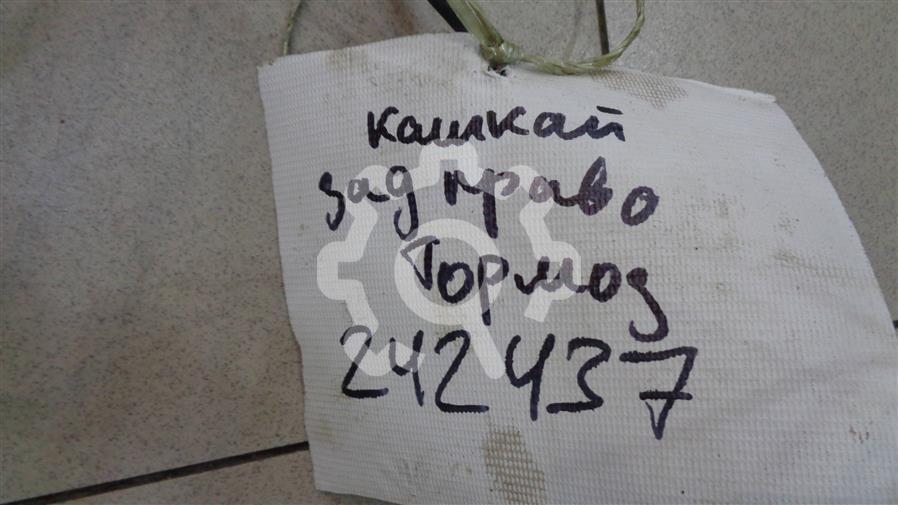 кашкай
зад право
Тормоз
242437